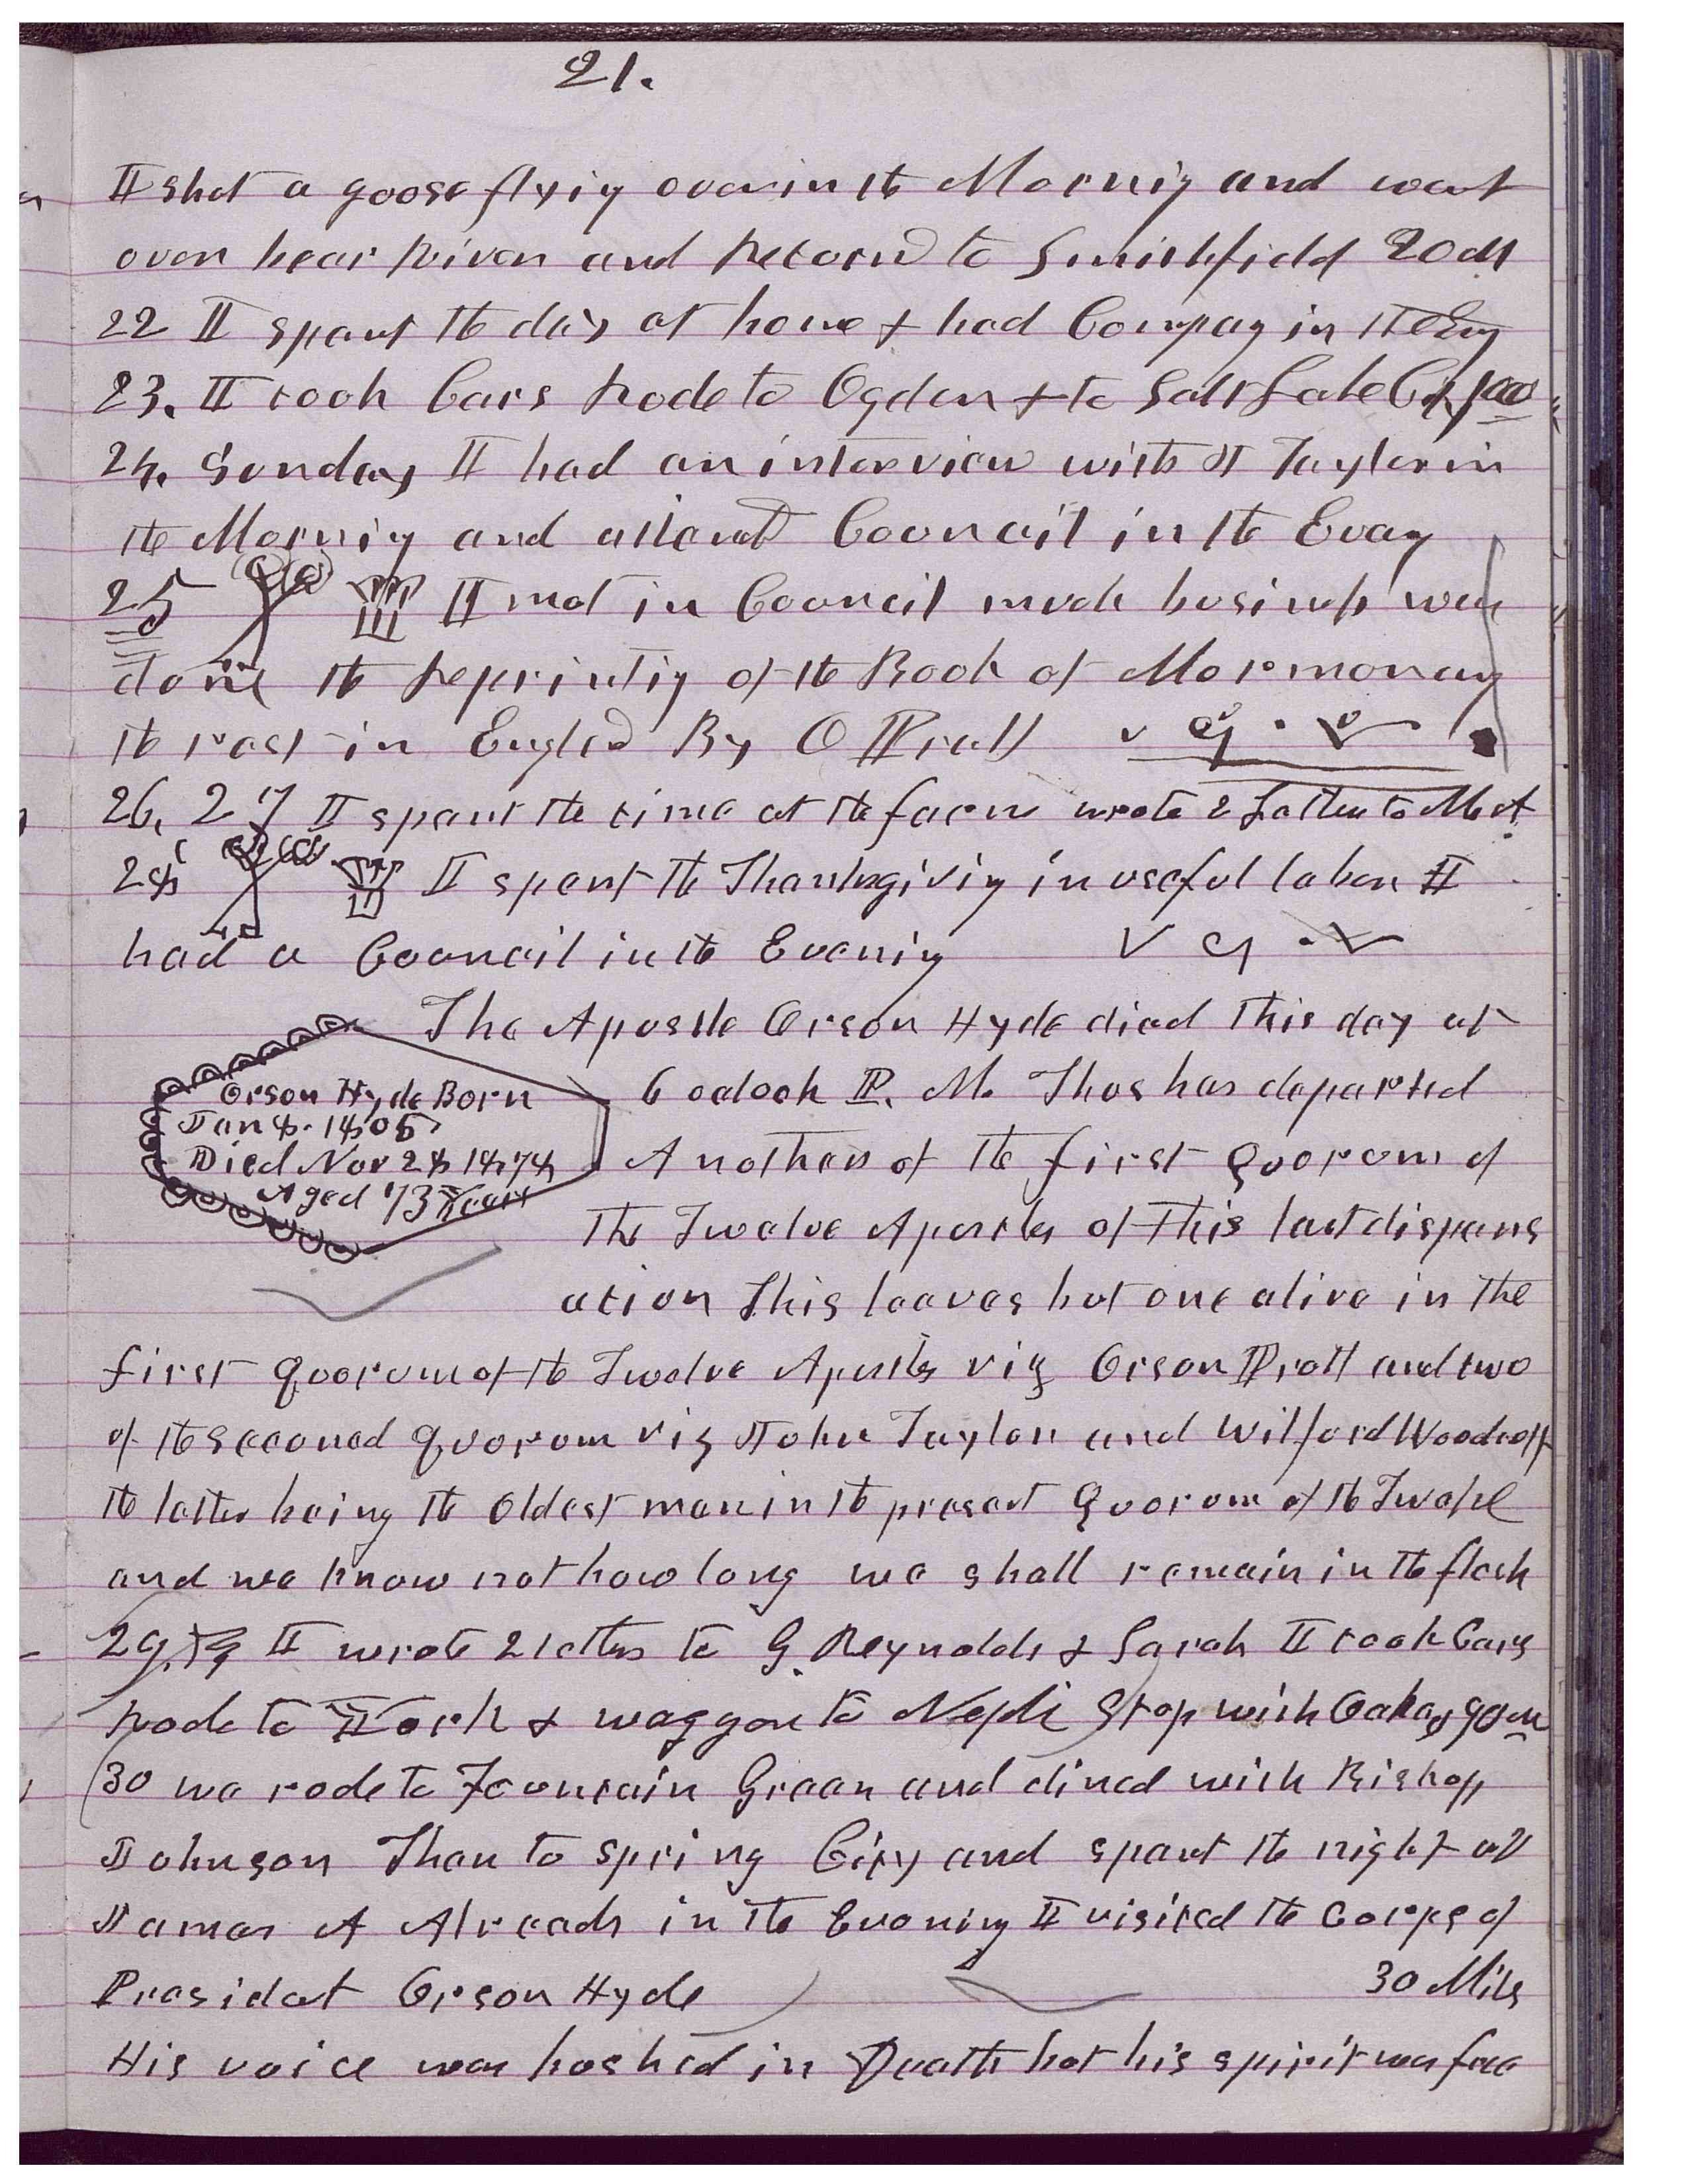 21.
I shot a goose flyig over in the Mornig and went
over bear River and Returnd to Smithfield 20 M
22 I spent the day at home & had Company in the Evg
23. I took Cars Rode to Ogden & to Salt Lake City 100
24. Sunday I had an interview with J Taylor in
the Mornig and attend Council in the Eveng
25 I met in Council much business was
done the Reprintig of the Book of Mormon any
the rest in England By O Pratt
26, 27 I spent the time at the farm wrote 2 Letters to
28 I spent the Thanksgiving in useful labor I
had a Council in the Evening
The Apostle Orson Hyde died this day at
Orson Hyde Born
Jan 8. 1805
Died Nov 28 1878
Aged 73 Years
6 oclock P. M. Thus has departed
Another of the first Quorum of
the Twelve Apostles of this last dispens
ation This leaves but one alive in the
first Quorum of the Twelve Apostles viz Orson Pratt and two
of the second quorum viz John Taylor and Wilford Woodruff
the latter being the oldest man in the present Quorum of the Twelve
and we know not how long we shall remain in the flesh
29. I wrote 2 letters to G. Reynolds & Sarah I took Cars
Rode to York & waggon to Nephi Stop with Oakey 90 m
30 we rode to Fountain Green and dined with Bishop
Johnson Then to Spring City and spent the night at
James A Alreads in the Evening I visited the Corps of
President Orson Hyde 30 Miles
His voice was hushed in Death but his spirit was free